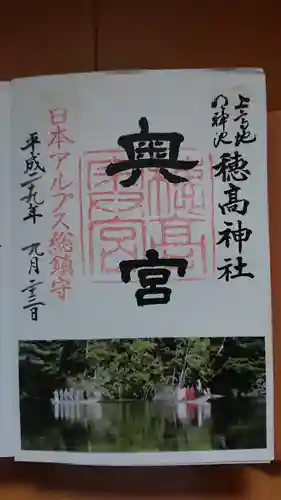 上高地
明神池
穂高神社
奥宮
日本アルプス総鎮守
平成二九年 九月二三日